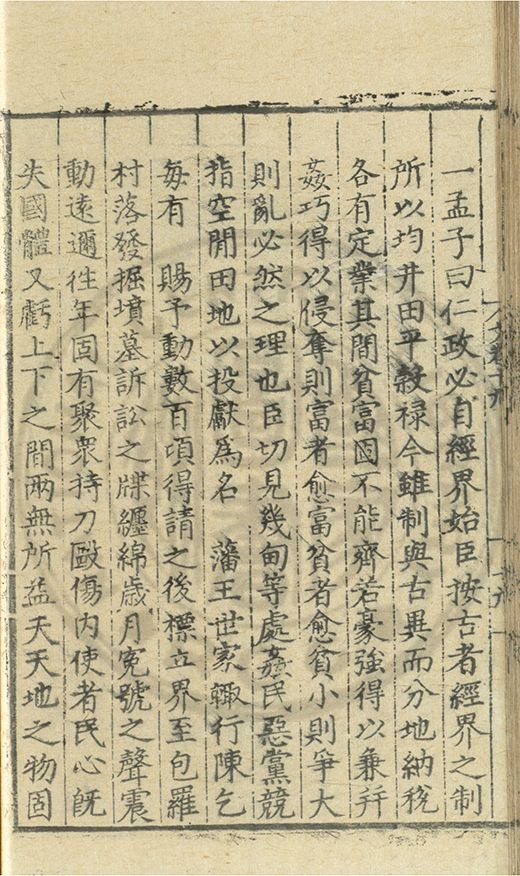 一孟子曰仁政必自經界始臣按古者經界之制
所以均井田平穀禄今雖制與古異而分地納稅
各有定業其間貧富固不能齊若豪強得以兼并
姦巧得以侵奪則富者愈富貧者愈貧小則爭大
則亂必然之理也臣切見幾甸等處姦民惡黨競
指空閒田地以投獻爲名　藩王世家輙行陳乞
每有　賜予動數百頃得請之後標立界至包羅
村落發掘墳墓訴訟之牒纏綿歲月冤號之聲震
動遠邇徃年固有聚衆持刀毆傷内使者民心旣
失國體又虧上下之間兩無所益夫天地之物固